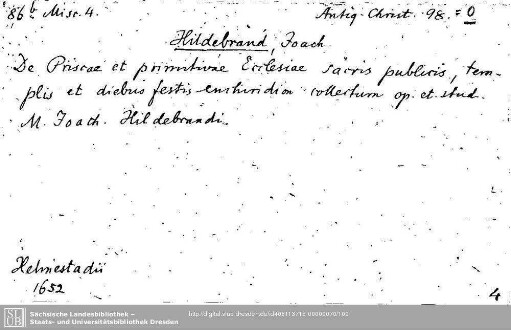 86 b Misc. 4.
Antiq. Christ. 98. = 0
Hildebrand, Joach
De Priscae et primitivae Ecclesiae sacris publicis, tem-
plis et diebus festis enchiridion collectum op. et stud.
M. Joach. Hildebrandi.
Helmestadii
1652
4
Sächsische Landesbibliothek –
Staats- und Universitätsbibliothek Dresden